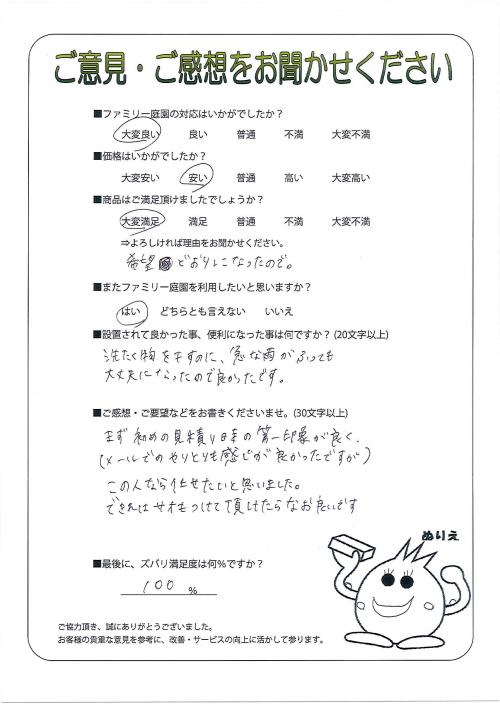 ご意見・ご感想をお聞かせください
■ファミリー庭園の対応はいかがでしたか？
大変良い 良い 普通 不満 大変不満
■価格はいかがでしたか？
大変安い 安い 普通 高い 大変高い
■商品はご満足頂けましたでしょうか？
大変満足 満足 普通 不満 大変不満
⇒よろしければ理由をお聞かせください。
希望どおりになったので。
■またファミリー庭園を利用したいと思いますか？
はい どちらとも言えない いいえ
■設置されて良かった事、便利になった事は何ですか？(20文字以上)
洗たく物を干すのに、急な雨がふっても
大丈夫になったので良かったです。
■ご感想・ご要望などをお書きくださいませ。(30文字以上)
まず初めの見積り日の第一印象が良く、
(メールでのやりとりも感じが良かったですが)
この人なら任せたいと思いました。
できればサオもつけて頂けたらなお良いです
ぬりえ
■最後に、ズバリ満足度は何％ですか？
100 %
ご協力頂き、誠にありがとうございました。
お客様の貴重な意見を参考に、改善・サービスの向上に活かして参ります。